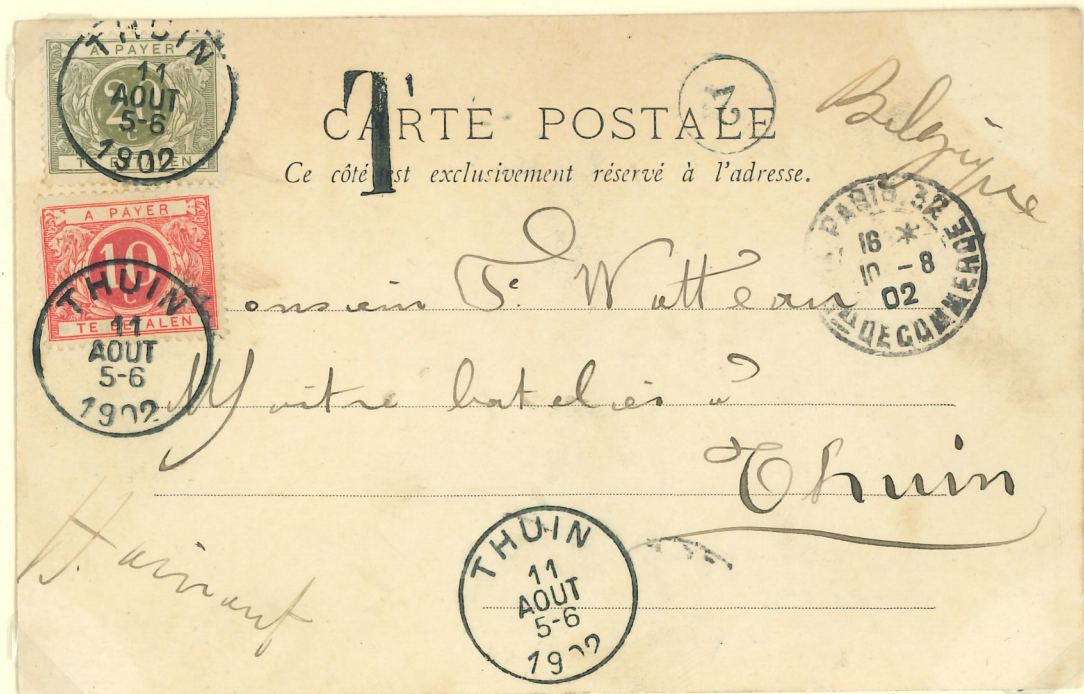 THUIN
11
AOUT
5-6
1902
A PAYER
20
TE BETALEN
T
CARTE POSTALE
Ce côté est exclusivement réservé à l'adresse.
Belgique
PARIS. 32
16 *
10 -8
02
DE COMMERCE
A PAYER
10
c
TE BETALEN
THUIN
11
AOUT
5-6
1902
Monsieur F. Watteau
Maître batelier à
Thuin
Hainaut
THUIN
11
AOUT
5-6
1902